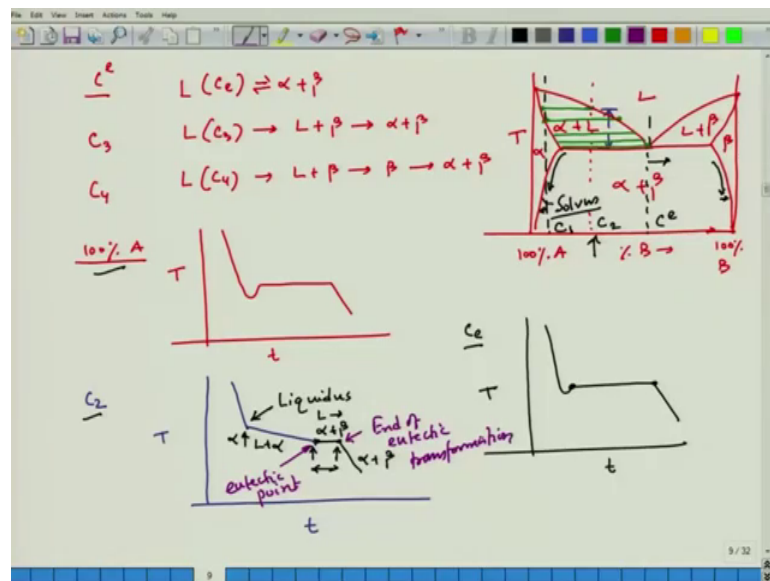 File Edit View Insert Actions Tools Help
Cᵉ L (Ce) ⇌ α + β
C₃ L (C₃) → L + β → α + β
C₄ L (C₄) → L + β → β → α + β
100% A
T
t
T
L
α + L
L + β
α
β
α + β
Solvus
C₁ C₂ Cᵉ
100% A % B → 100% B
C₂
T
Liquidus
L → α + β
α L + α
End of eutectic transformation
eutectic point
α + β
t
Ce
T
t
9 / 32
9